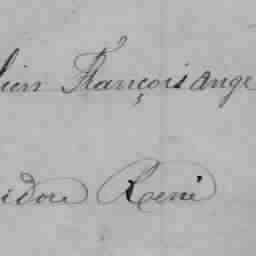 lien François ange
idore René